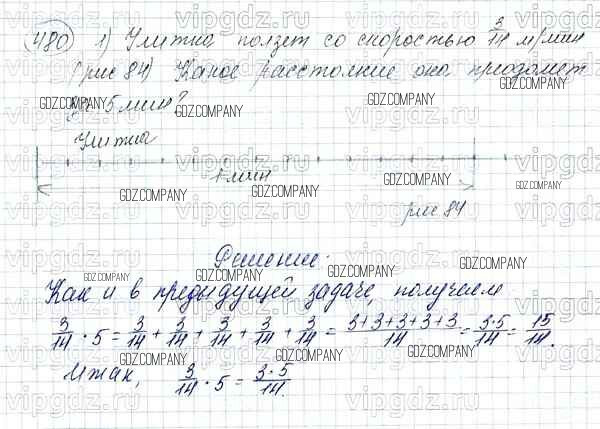 480 1) Улитка ползет со скоростью 3/14 м/мин
(рис 84) Какое расстояние она проползет
за 5 мин?
Улитка
1 мин
рис 84
Решение:
Как и в предидущей задаче, получаем
3/14 · 5 = 3/14 + 3/14 + 3/14 + 3/14 + 3/14 = 3+3+3+3+3/14 = 3·5/14 = 15/14.
Итак, 3/14 · 5 = 3·5/14.